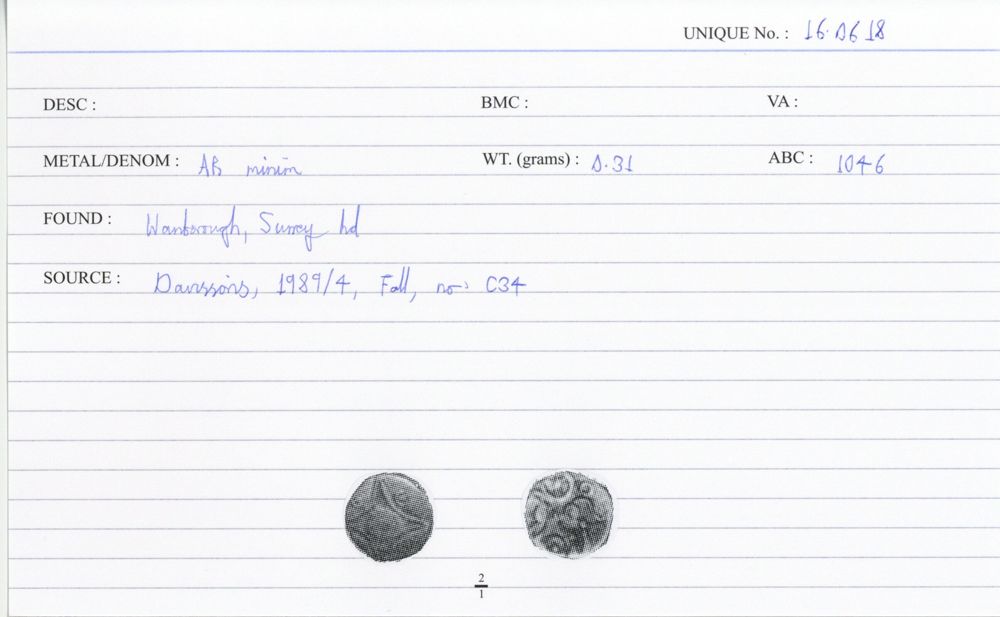 UNIQUE No. : 16.0618
DESC : BMC : VA :
METAL/DENOM : AR minim WT. (grams) : 0.31 ABC : 1046
FOUND : Wanborough, Surrey hd
SOURCE : Davissons, 1989/4, Fall, no: C34
2
1